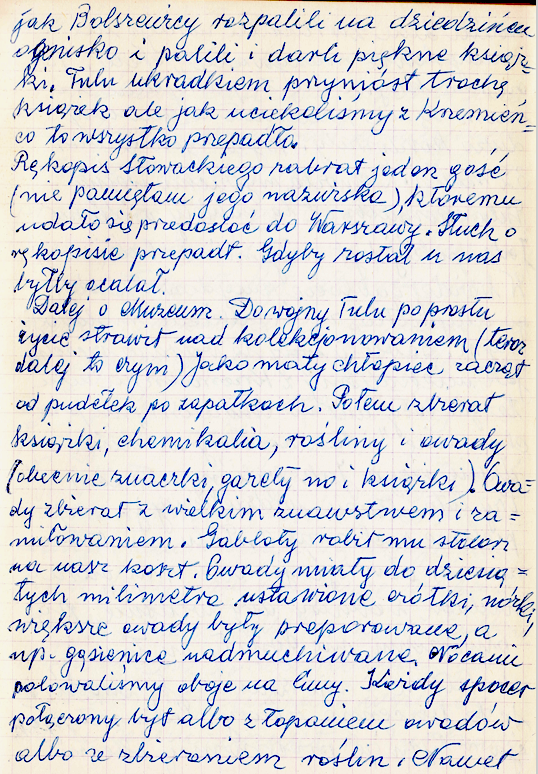 jak Bolszewicy rozpalili na dziedzińcu
ognisko i palili i darli piękne książ=
ki. Tulu ukradkiem przyniósł trochę
książek ale jak uciekaliśmy z Krzemień=
ca to wszystko przepadło.
Rękopis Słowackiego zabrał jeden gość
(nie pamiętam jego nazwiska), któremu
udało się przedostać do Warszawy. Słuch o
rękopisie przepadł. Gdyby został u nas
byłby ocalał.
Dalej o Muzeum. Do wojny Tulu po prostu
życie strawił nad kolekcjonowaniem (teraz
dalej to czyni) Jako mały chłopiec zaczął
od pudełek po zapałkach. Potem zbierał
książki, chemikalia, rośliny i owady
(obecnie znaczki, gazety no i książki). Owa=
dy zbierał z wielkim znawstwem i za=
miłowaniem. Gabloty robił mu stolarz
na nasz koszt. Owady miały do dziesią=
tych milimetra ustawione czółki, nóżki,
większe owady były preparowane, a
np. gąsienice nadmuchiwane. Nocami
polowaliśmy oboje na ćmy. Każdy spacer
połączony był albo z łapaniem owadów
albo ze zbieraniem roślin. Nawet